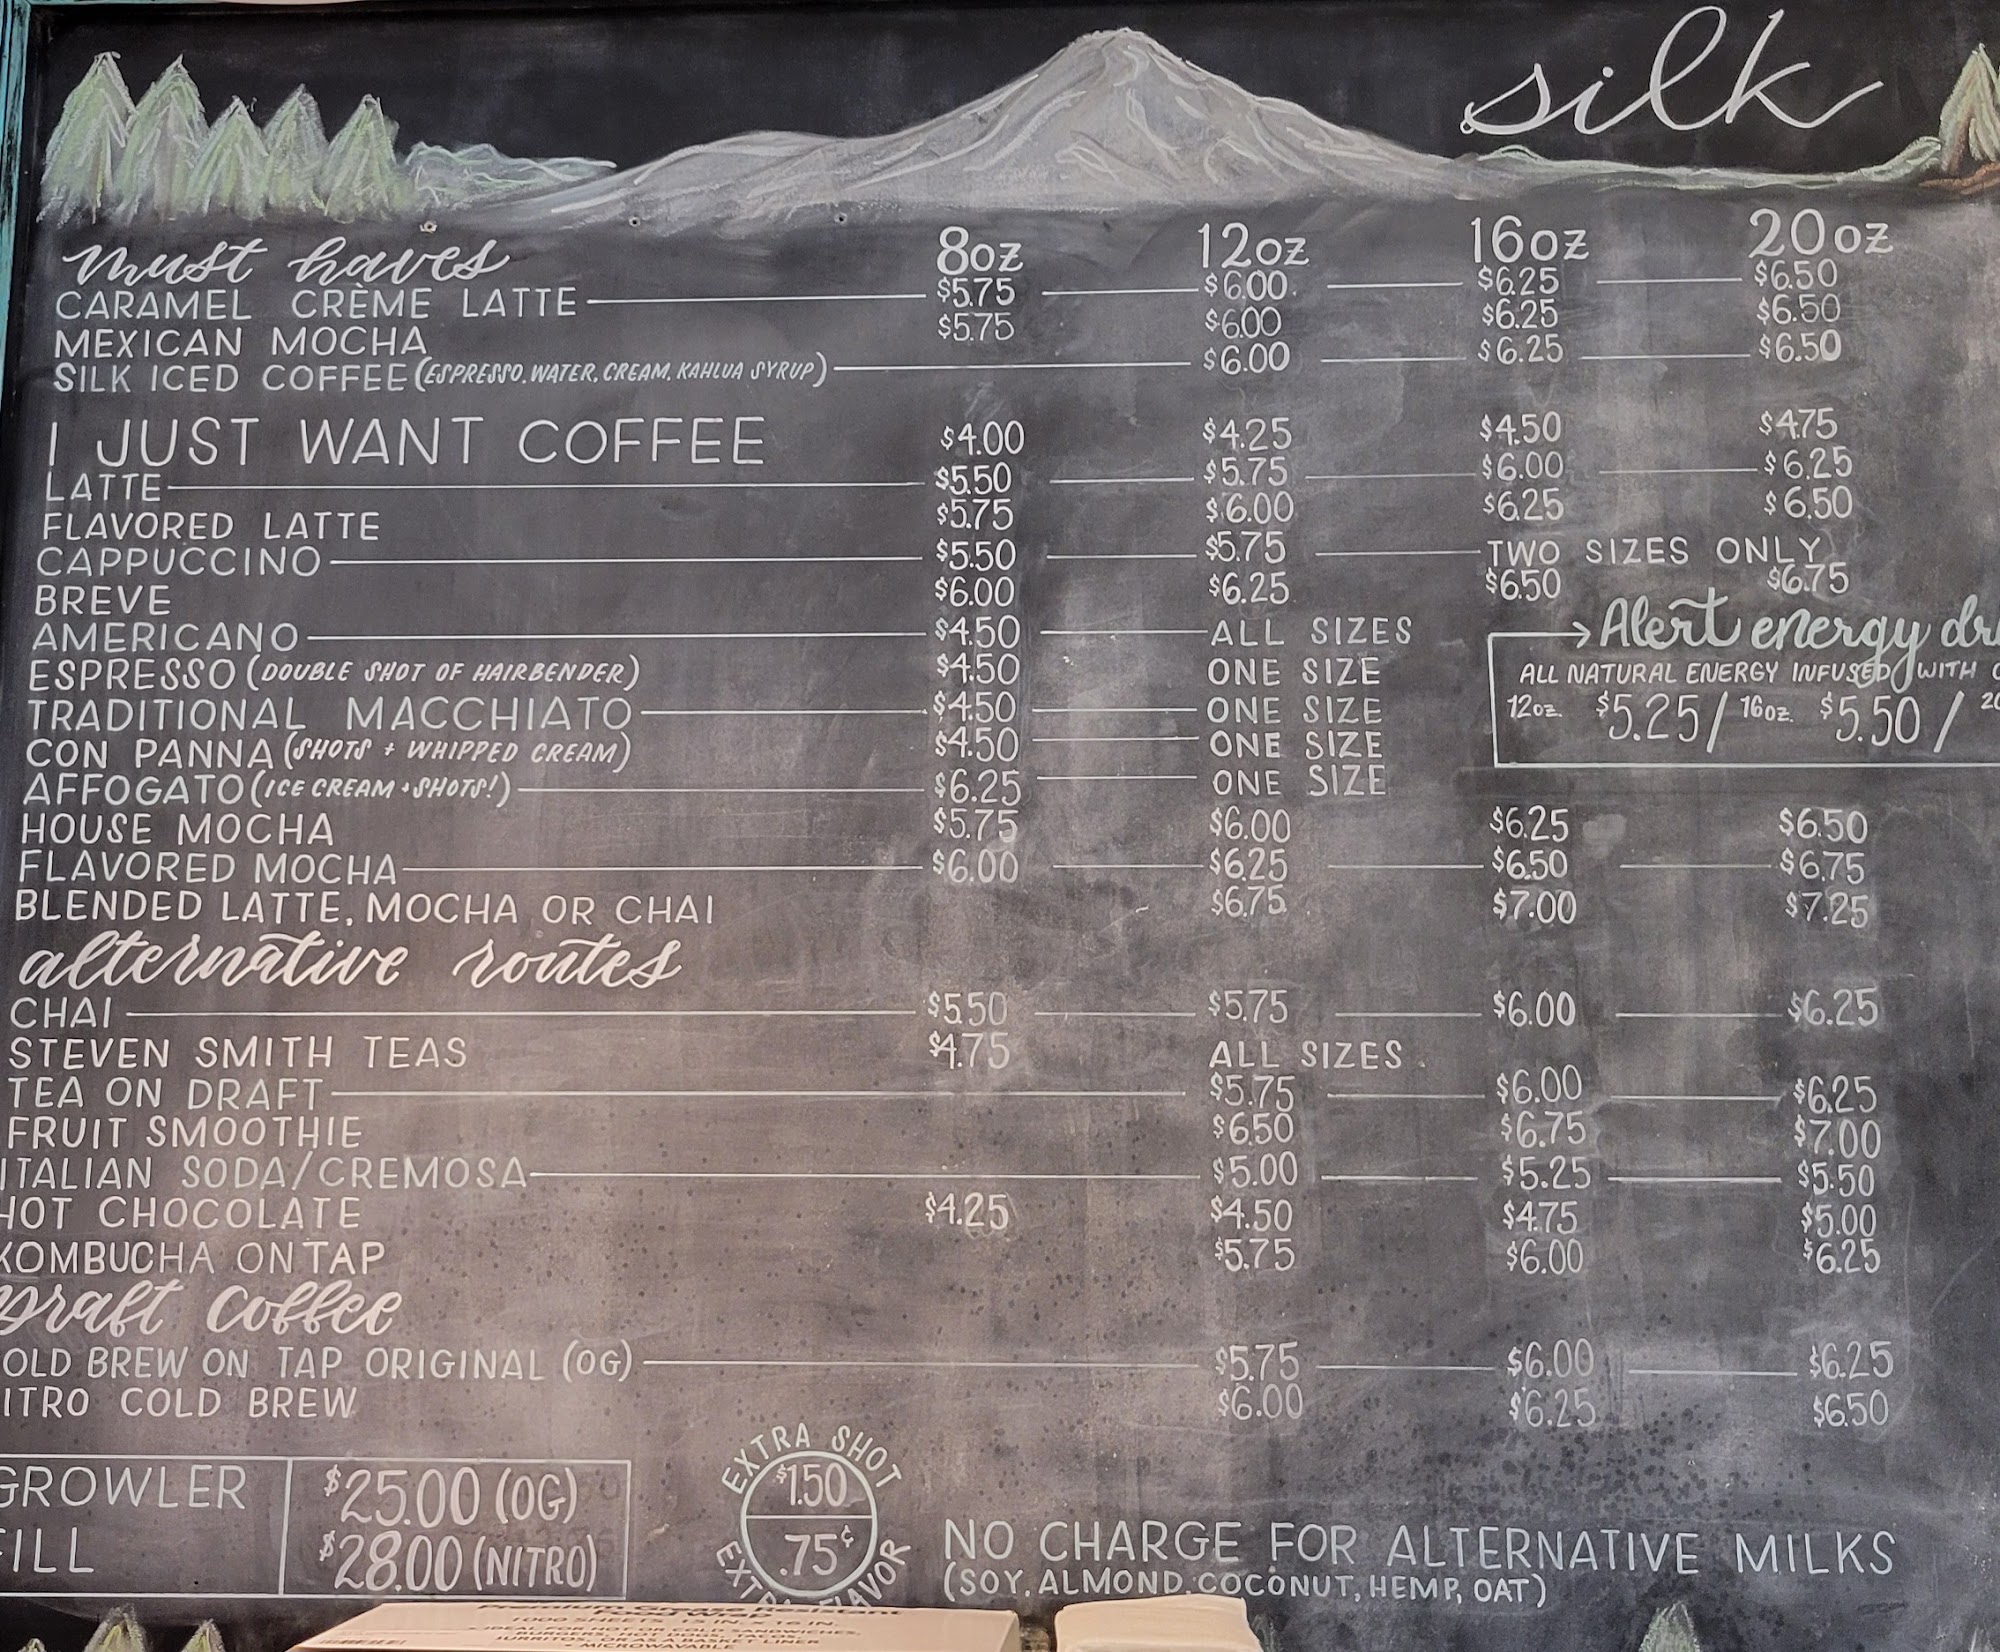 silk
must haves 8oz 12oz 16oz 20oz
CARAMEL CRÈME LATTE $5.75 $6.00 $6.25 $6.50
MEXICAN MOCHA $5.75 $6.00 $6.25 $6.50
SILK ICED COFFEE (ESPRESSO, WATER, CREAM, KAHLUA SYRUP) $6.00 $6.25 $6.50
I JUST WANT COFFEE $4.00 $4.25 $4.50 $4.75
LATTE $5.50 $5.75 $6.00 $6.25
FLAVORED LATTE $5.75 $6.00 $6.25 $6.50
CAPPUCCINO $5.50 $5.75 TWO SIZES ONLY
BREVE $6.00 $6.25 $6.50 $6.75
AMERICANO $4.50 ALL SIZES
ESPRESSO (DOUBLE SHOT OF HAIRBENDER) $4.50 ONE SIZE
TRADITIONAL MACCHIATO $4.50 ONE SIZE
CON PANNA (SHOTS + WHIPPED CREAM) $4.50 ONE SIZE
AFFOGATO (ICE CREAM + SHOTS!) $6.25 ONE SIZE
Alert energy dri
ALL NATURAL ENERGY INFUSED WITH
12oz. $5.25 / 16oz. $5.50 / 20
HOUSE MOCHA $5.75 $6.00 $6.25 $6.50
FLAVORED MOCHA $6.00 $6.25 $6.50 $6.75
BLENDED LATTE, MOCHA OR CHAI $6.75 $7.00 $7.25
alternative routes
CHAI $5.50 $5.75 $6.00 $6.25
STEVEN SMITH TEAS $4.75 ALL SIZES
TEA ON DRAFT $5.75 $6.00 $6.25
FRUIT SMOOTHIE $6.50 $6.75 $7.00
ITALIAN SODA/CREMOSA $5.00 $5.25 $5.50
HOT CHOCOLATE $4.25 $4.50 $4.75 $5.00
KOMBUCHA ON TAP $5.75 $6.00 $6.25
Draft Coffee
OLD BREW ON TAP ORIGINAL (OG) $5.75 $6.00 $6.25
ITRO COLD BREW $6.00 $6.25 $6.50
GROWLER FILL
$25.00 (OG)
$28.00 (NITRO)
EXTRA SHOT
$1.50
.75¢
EXTRA FLAVOR
NO CHARGE FOR ALTERNATIVE MILKS
(SOY, ALMOND, COCONUT, HEMP, OAT)
Food Wrap
1000 SHEETS
IDEAL FOR HOT OR COLD SANDWICHES,
BURGERS, HOT DOGS, TACOS,
BURRITOS, OR AS A BASKET LINER
- MICROWAVABLE